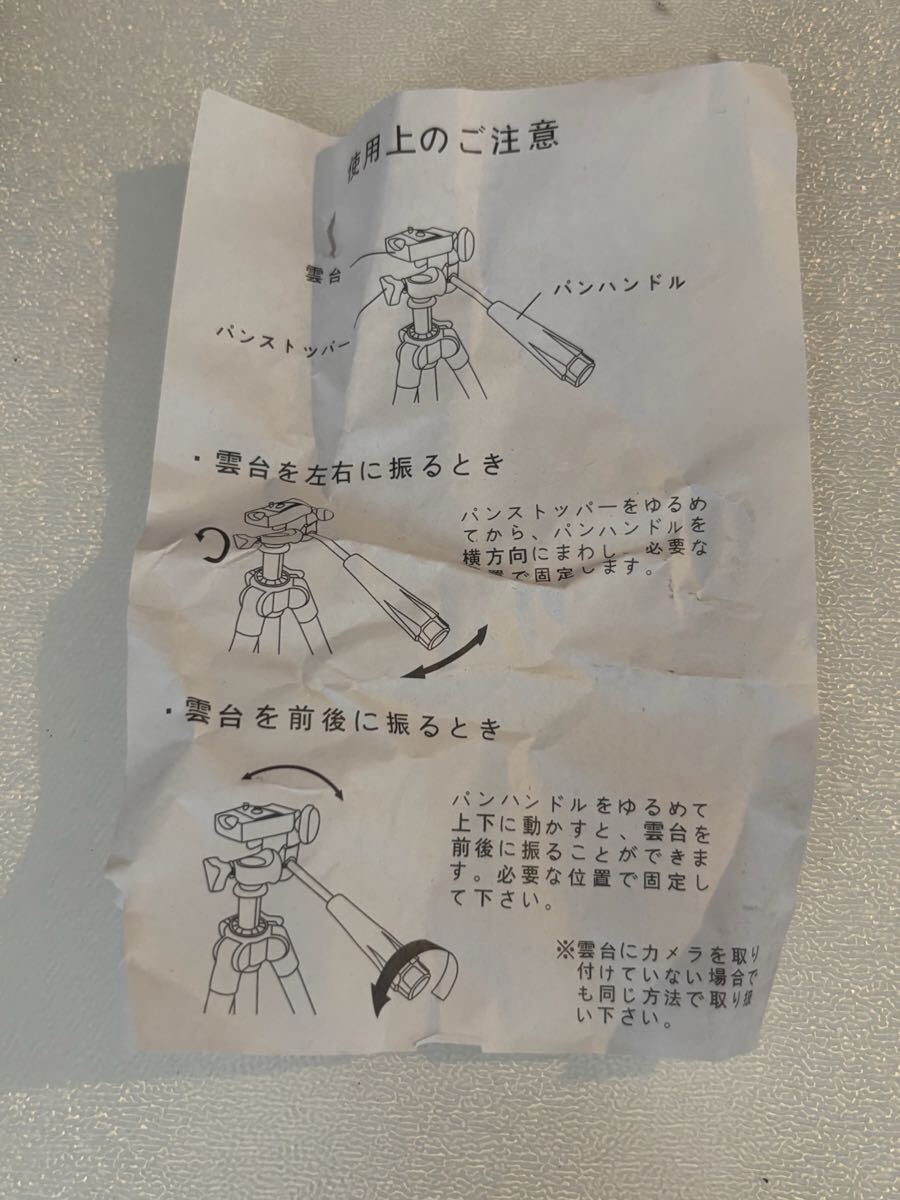 使用上のご注意
雲台
パンハンドル
パンストッパー
・雲台を左右に振るとき
パンストッパーをゆるめ
てから、パンハンドルを
横方向にまわし、必要な
置で固定します。
・雲台を前後に振るとき
パンハンドルをゆるめて
上下に動かすと、雲台を
前後に振ることができま
す。必要な位置で固定し
て下さい。
※雲台にカメラを取り
付けていない場合で
も同じ方法で取り扱
い下さい。